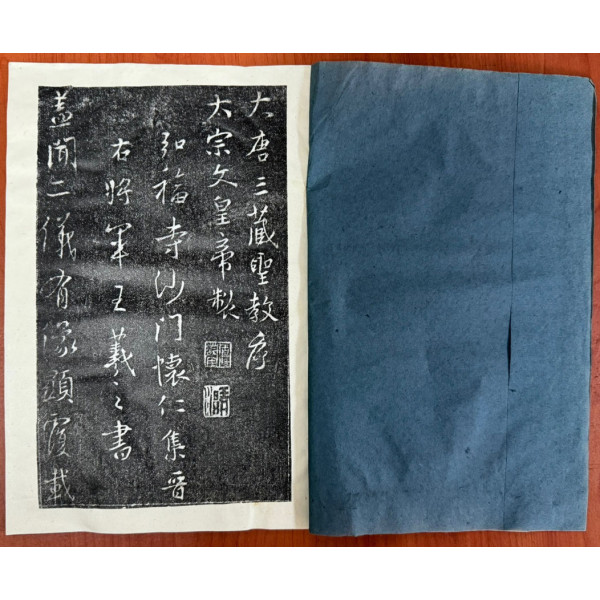 大唐三藏聖教序
太宗文皇帝製
弘福寺沙門懷仁集晉
右將軍王羲之書
蓋聞二儀有像顯覆載